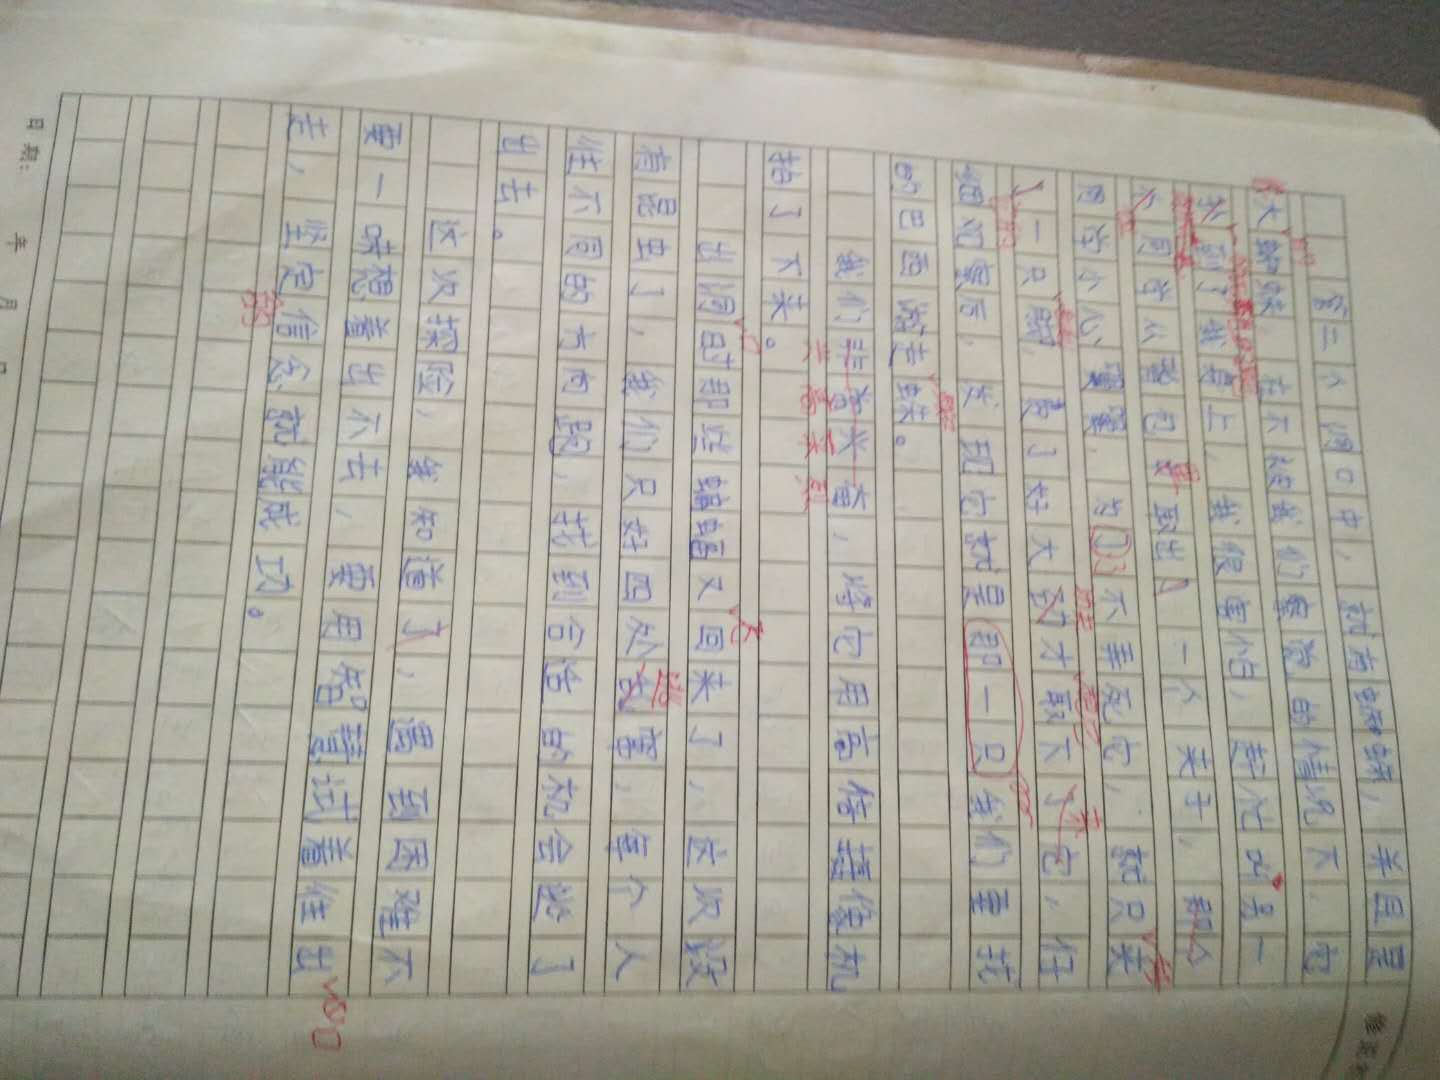 第三个洞口中，就有蜘蛛，并且是
大蜘蛛，在不经我们察觉的情况下，它
到了我身上，我很害怕，赶忙叫另一
个同学从着已取出一个夹子，那个
同学小心翼翼，为了不弄死它，就只夹
一只脚，费了好大劲才取下了它，仔
细观察后，发现它就是那一只我们要找
的巴西游走蛛。
我们非常兴奋，将它用高倍摄像机
拍了下来。
出洞时那些蝙蝠又回来了，这次没
有昆虫了，我们只好四处 害，每个人
往不同的方向跑，找到合适的机会逃了
出去。
这次探险，我知道了，遇到困难不
要一味想着出不去，要用智慧试着往出
走，坚定信念就能成功。
日期： 年 月 日